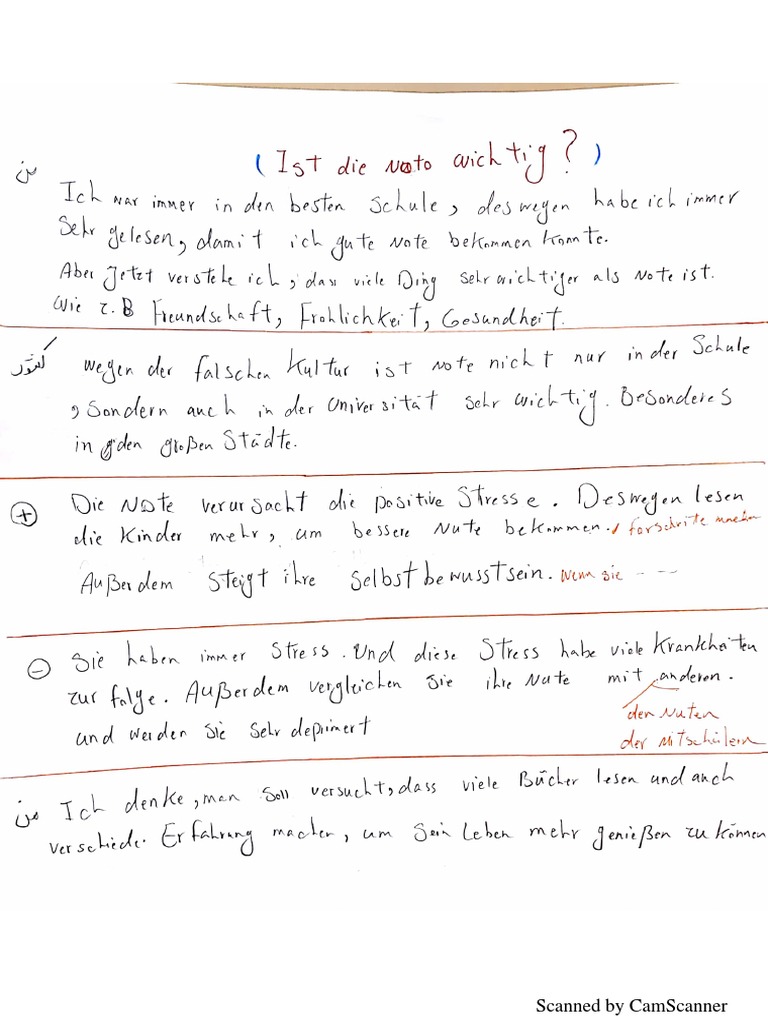 ( Ist die Note wichtig? )
من
Ich war immer in den besten Schule, deswegen habe ich immer
Sehr gelesen, damit ich gute Note bekommen konnte.
Aber Jetzt verstehe ich, dass viele Ding sehr wichtiger als Note ist.
Wie z.B Freundschaft, Frohlichkeit, Gesundheit.
کشور
wegen der falschen Kultur ist Note nicht nur in der Schule
, Sondern auch in der Universität sehr wichtig. Besonderes
in den großen Städte.
+ Die Note verursacht die positive Stresse. Deswegen lesen
die Kinder mehr, um bessere Nute bekommen. forschrite machen
Außerdem steigt ihre Selbstbewusstsein. wenn sie - - -
- Sie haben immer Stress. Und diese Stress habe viele Krankheiten
zur folge. Außerdem vergleichen Sie ihre Nute mit anderen.
den Nuten
und werden Sie sehr deprimert
der Mitschülern
من
Ich denke, man soll versucht, dass viele Bücher lesen und auch
verschiede. Erfahrung machen, um sein Leben mehr genießen zu können
Scanned by CamScanner